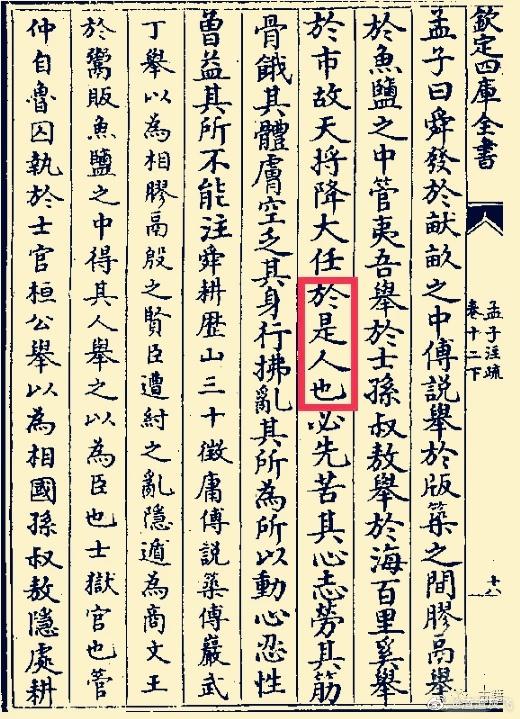 欽定四庫全書
孟子注疏
卷十二下
十八
孟子曰舜發於畎畝之中傅說舉於版築之間膠鬲舉
於魚鹽之中管夷吾舉於士孫叔敖舉於海百里奚舉
於市故天將降大任於是人也必先苦其心志勞其筋
骨餓其體膚空乏其身行拂亂其所為所以動心忍性
曾益其所不能注舜耕歴山三十徵庸傅説築傅巖武
丁舉以為相膠鬲殷之賢臣遭紂之亂隱遁為商文王
於鬻販魚鹽之中得其人舉之以為臣也士獄官也管
仲自魯囚執於士官桓公舉以為相國孫叔敖隱處耕